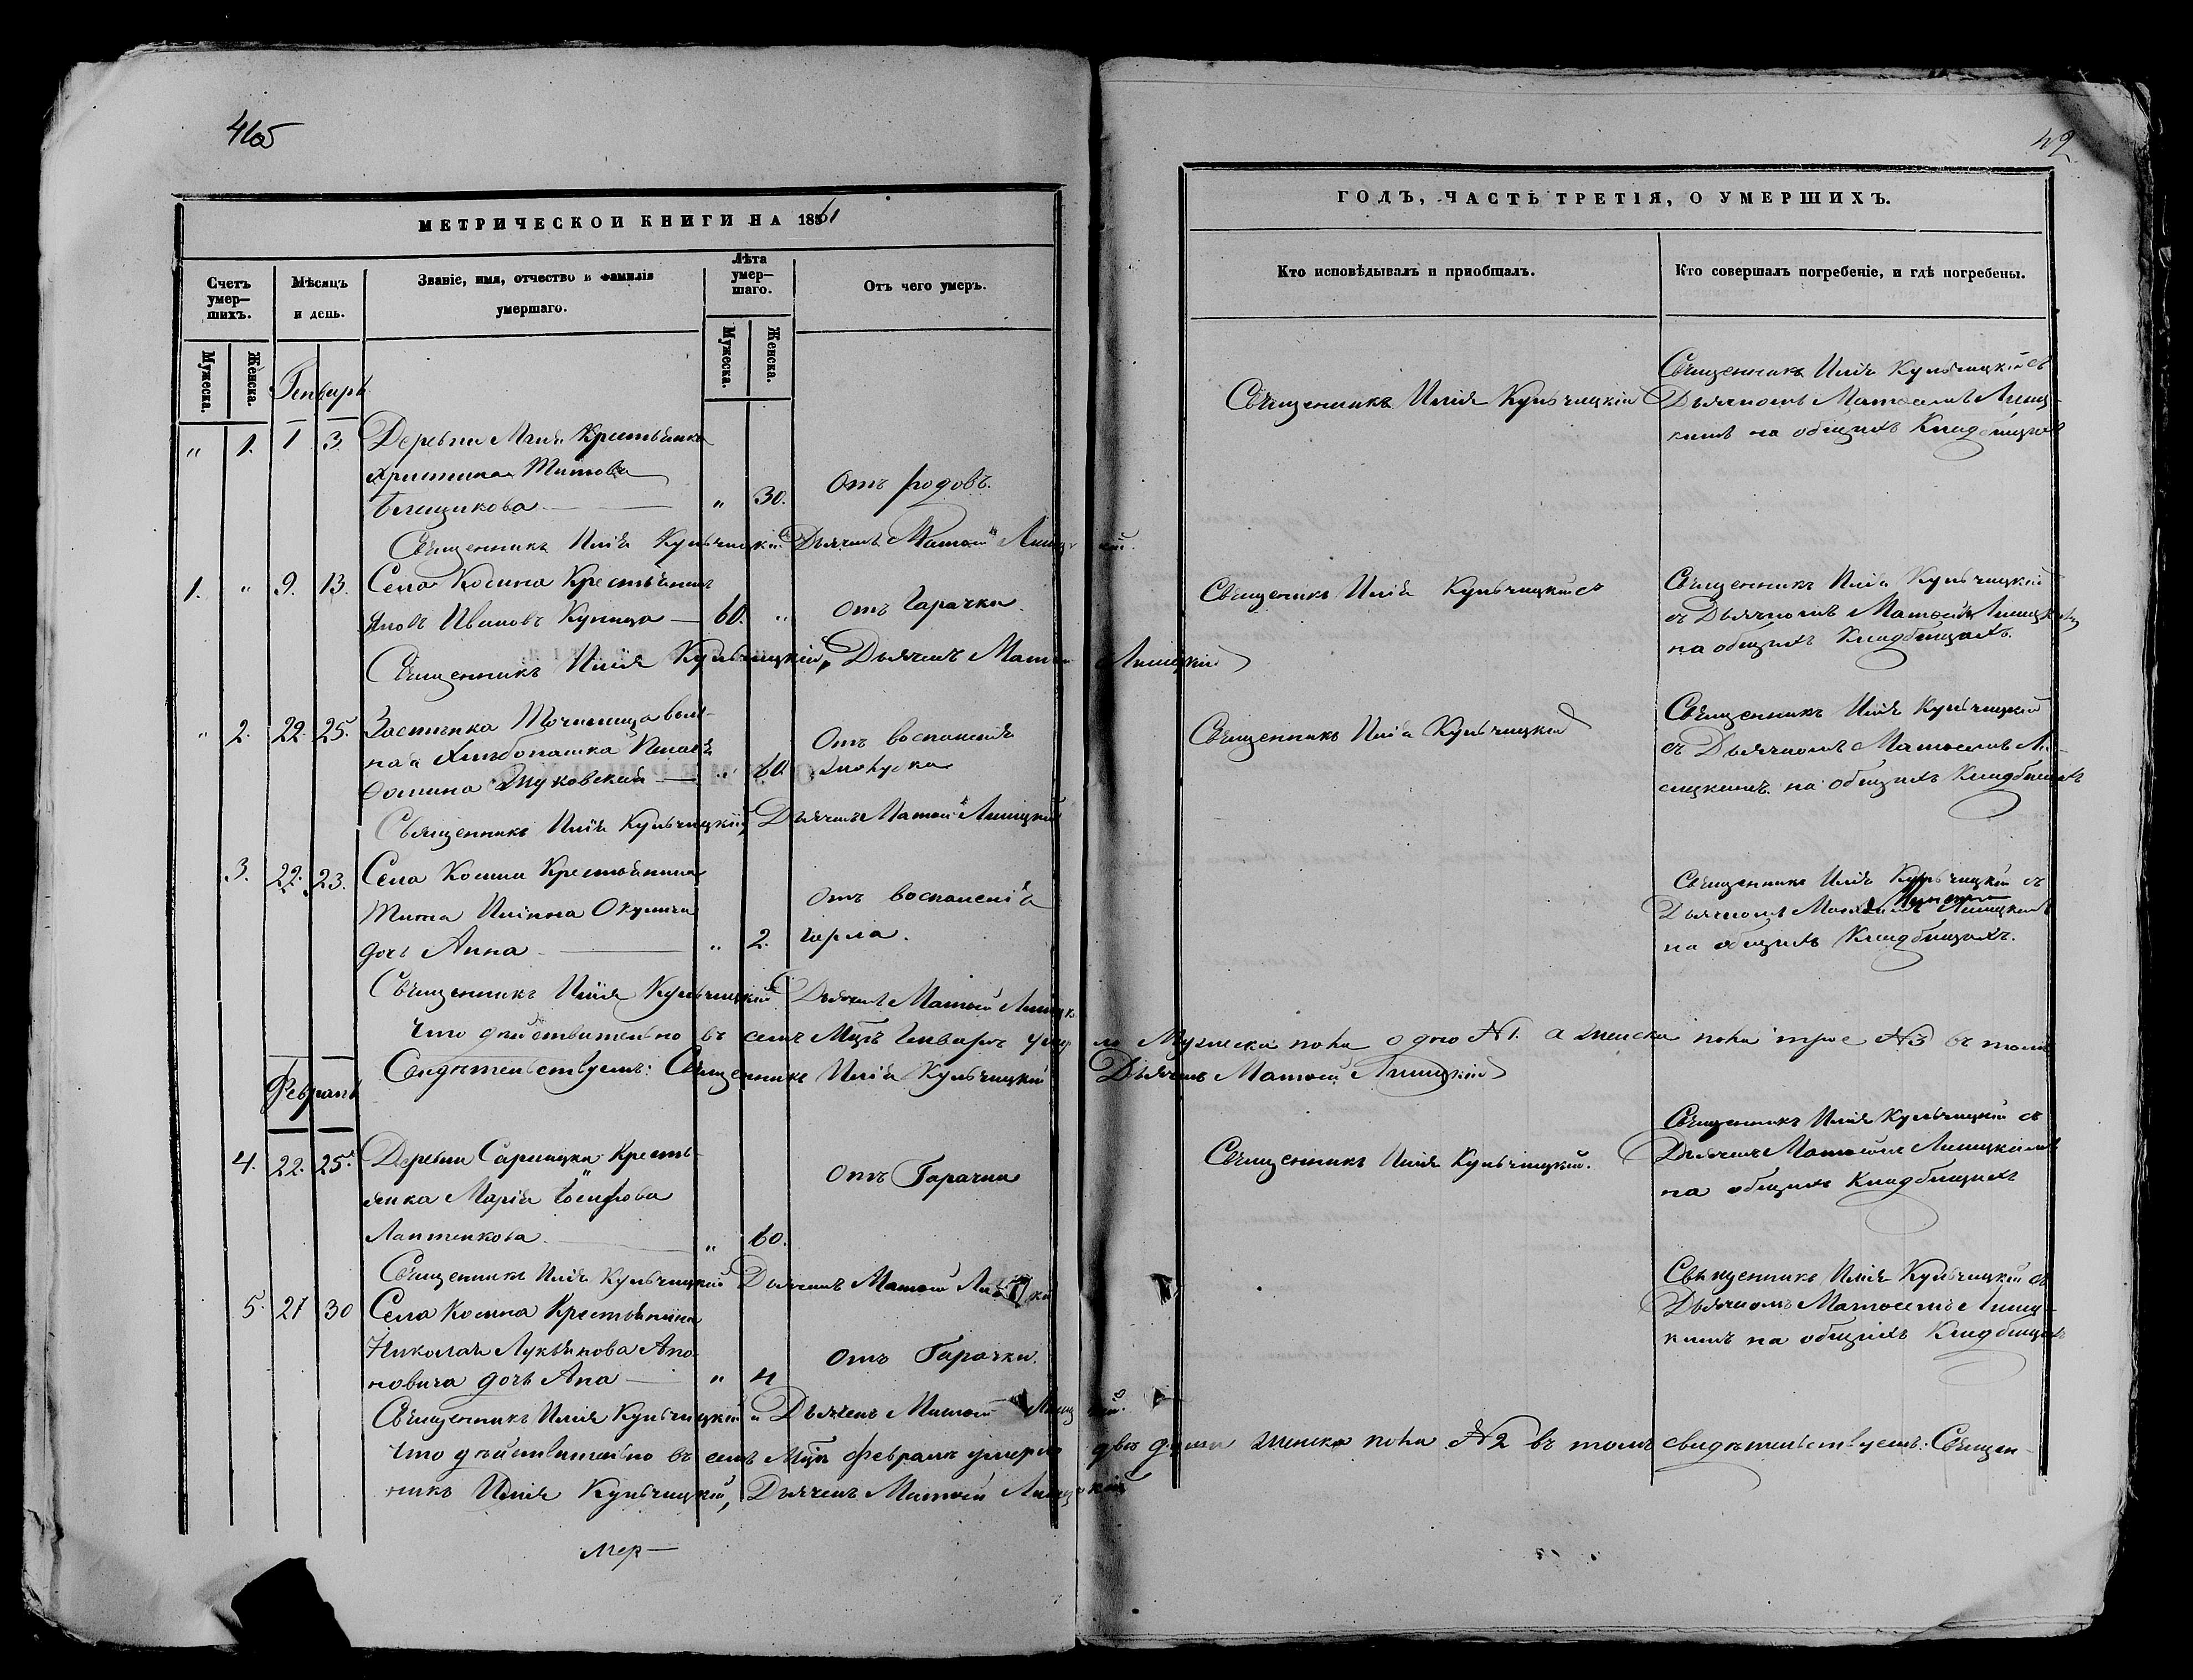 42
МЕТРИЧЕСКОЙ КНИГИ НА 1861
ГОДЪ, ЧАСТЬ ТРЕТІЯ, О УМЕРШИХЪ.
Счетъ умер—шихъ.
Мѣсяцъ и день.
Званіе, имя, отчество и фамилія
умершаго.
Лѣта умер—шаго.
Отъ чего умеръ.
Кто исповѣдывалъ и пріобщалъ.
Кто совершалъ погребеніе, и гдѣ погребены.
Мужеска.
Женска.
Мужеска.
Женска.
Генварь
" 1. 1 3. Деревни Крестьянка
Христина Титова
" 30. Отъ родовъ.
Священникъ Илія Кульчицкій
Священникъ Илія Кульчицкій съ
Дьячкомъ Матѳеемъ Лисиц-
кимъ на общихъ Кладбищахъ
Священникъ Илія Кульчицкій Дьячекъ Матѳей Лисицкій.
1. " 9. 13. Села Крестьянинъ
Яковъ Ивановъ Куница — 60. " Отъ Гарячки.
Священникъ Илія Кульчицкій
Священникъ Илія Кульчицкій
съ Дьячкомъ Матѳеемъ Лисицкимъ
на общихъ Кладбищахъ.
Священникъ Илія Кульчицкій, Дьячекъ Матѳей Лисицкій
" 2. 22. 25. Застѣнка воль-
ная Хлѣбопашка
— " 60. Отъ воспаленія
Священникъ Илія Кульчицкій
Священникъ Илія Кульчицкій
съ Дьячкомъ Матѳеемъ Ли-
сицкимъ на общихъ Кладбищахъ
Священникъ Илія Кульчицкій, Дьячекъ Матѳей Лисицкій
3. 22. 23. Села Крестьянина
Тита Иліина Окулича
дочь Анна — " 2. Отъ воспаленія
горла.
Священникъ Илія Кульчицкій съ
Дьячкомъ Матѳеемъ Лисицкимъ
на общихъ Кладбищахъ.
Священникъ Илія Кульчицкій Дьячекъ Матѳей Лисицк
Что дѣйствительно въ семъ Мцѣ Генварѣ умерло Мужеска пола одно №1. а женска пола трое №3 въ томъ
Свидѣтельствуемъ: Священникъ Илія Кульчицкій Дьячекъ Матѳей Лисицкій
Февраль
4. 22. 25. Деревни Кресть-
янка Марія Іосифова
Лаптенкова — " 60. Отъ Гарячки
Священникъ Илія Кульчицкій.
Священникъ Илія Кульчицкій съ
Дьячкомъ Матѳеемъ Лисицкимъ
на общихъ Кладбищахъ
Священникъ Илія Кульчицкій Дьячекъ Матѳей
5. 27 30 Села Крестьянина
Николая Лукьянова Апо-
новича дочь Ана — " 4 Отъ Гарячки.
Священникъ Илія Кульчицкій съ
Дьячкомъ Матѳеемъ Лисиц-
кимъ на общихъ Кладбищахъ
Священникъ Илія Кульчицкій и Дьячекъ Матѳей Лисицкій.
Что дѣйствительно въ семъ Мцѣ Февралѣ умерло двѣ души женска пола №2 въ томъ свидѣтельствуемъ: Священ-
никъ Илія Кульчицкій, Дьячекъ Матѳей Лисицкій
Мер—